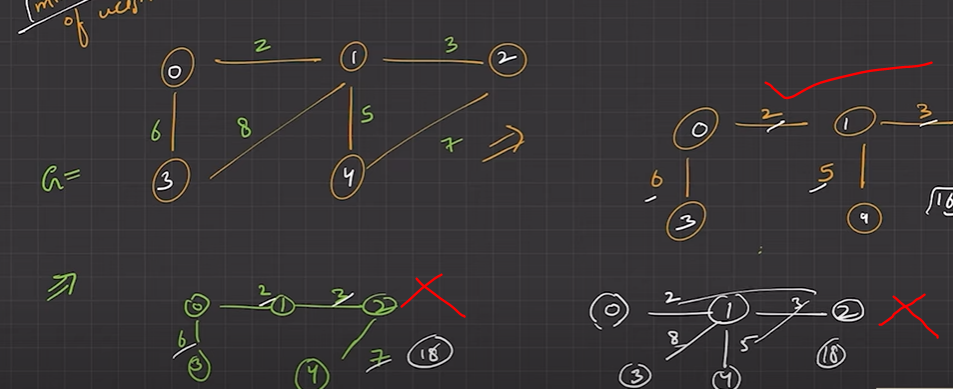 of
0 2 1 3 2
6 8 5 7
G=
3 4
0 2 1 3
6 5
3 4
0 2 1 3 2
6
3 4 7 18
0 2 1 3 2
8 5
3 4 18